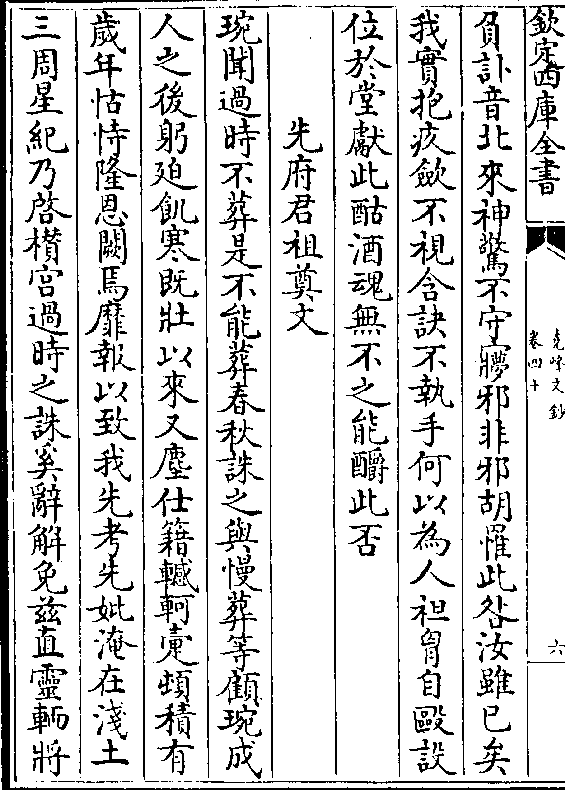 欽定四庫全書
堯峰文鈔
卷四十
六
負訃音北來神驚不守寱邪非邪胡罹此咎汝雖已矣
我實抱疚斂不視含訣不執手何以為人袒胷自毆設
位於堂獻此酤酒魂無不之能酹此否
先府君祖奠文
琬聞過時不葬是不能葬春秋誅之與慢葬等顧琬成
人之後躬廹飢寒既壯以來又塵仕籍轗軻䠖頓積有
歲年怙恃隆恩闕焉靡報以致我先考先妣淹在淺土
三周星紀乃啓欑宫過時之誅奚辭解免兹直靈輀將